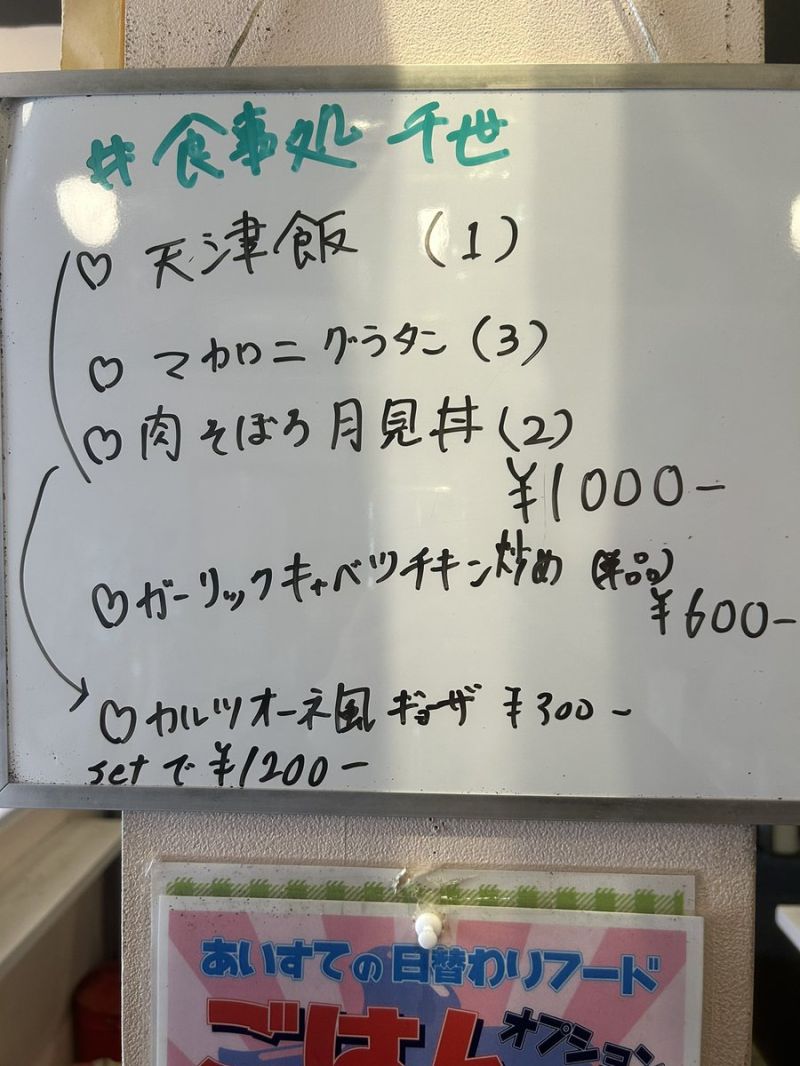 #食事処 千世
♡ 天津飯 (1)
♡ マカロニグラタン (3)
♡ 肉そぼろ月見丼 (2)
¥1000-
♡ ガーリックキャベツチキン炒め (単品)
¥600-
♡ カルツオーネ風ギョーザ ¥300-
setで¥1200-
あいすての日替わりフード
ごはん
オプション